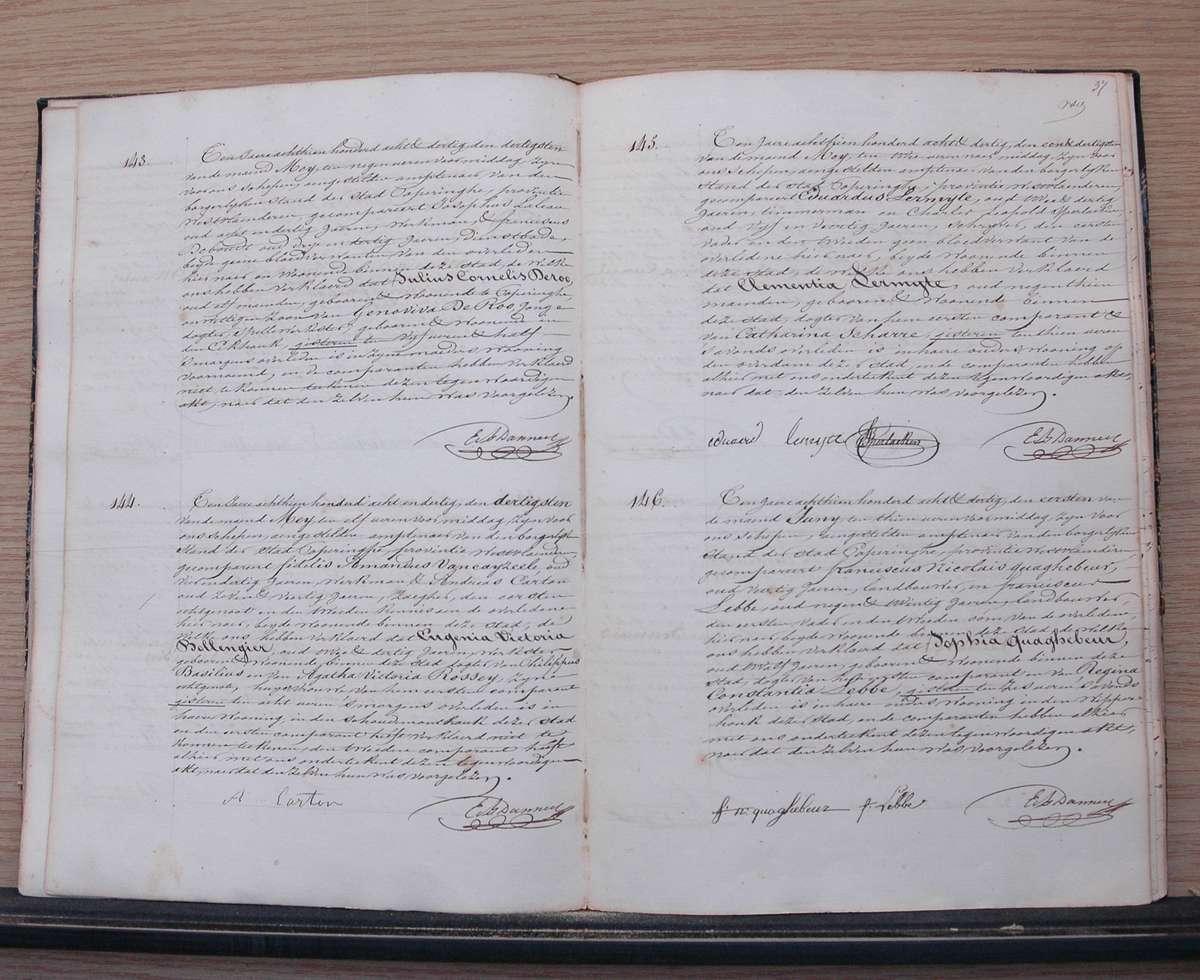 143.
Ten Jaere achthien honderd acht & dertig, den dertigsten
van de maand Mey, ten negen ueren voor middag, zyn
voor ons schepen, aengestelden amptenaer van den
borgerlyken stand der stad Poperinghe, provintie
Westvlaenderen, gecompareert Josephus
oud acht en dertig Jaeren, Werkman, & franciscus
oud dry en dertig Jaeren, Dienstbode,
beyde geene bloedverwanten van den overleden
hier naer en woonende binnen deze stad, de welke
ons hebben verklaerd dat Julius Cornelis Deroo,
oud elf maenden, gebooren & woonende te Poperinghe,
onwettigen zoon van Genoviva De Roo, Jonge
dogter, Spellewerkster, geboorend & woonend in
den Eekhoek, gisteren ten vyf ueren & half
s'morgens overleden is in zyne moeders wooning
voornaemd, en de comparanten hebben verklaerd
niet te konnen teekenen dezen tegenwoordigen
akt, naer dat den zelven hun was voorgelezen.
144.
Ten Jaere achthien honderd acht en dertig, den dertigsten
van de maand Mey, ten elf ueren voor middag, zyn voor
ons schepen, aengestelden amptenaer van den borgerlyken
stand der stad Poperinghe, provintie Westvlaenderen,
gecompareert fidelis Amandus Vancayzeele, oud
Jaeren, Werkman & Andreas Carton
oud zeven & veertig Jaeren, Zaegher, den eersten
echtgenoot en den tweeden kennis aen de overledene
hier naer, beyde woonende binnen deze stad, de
welke ons hebben verklaerd dat Eugenia Victoria
Bellengier, oud twee & dertig Jaeren, Werkster,
geboorend & woonende binnen deze stad, dogter van Philippus
Basilius en van Agatha Victoria Rossey, zyne
echtgenote, huysvrouw van hem eersten comparant
gisteren ten acht ueren s'morgens overleden is in
haere wooning in den Schoudemonthoek dezer stad
en den eersten comparant heeft verklaerd niet te
konnen teekenen, den tweeden comparant heeft
alhier met ons onderteekent dezen tegenwoordigen
akt, naer dat den zelven hun was voorgelezen.
A Carton
145.
37
Ten Jaere achthien honderd acht & dertig, den een & dertigsten
van de maand Mey, ten twee ueren naer middag, zyn voor
ons schepen, aengestelden amptenaer van den borgerlyken
stand der stad Poperinghe, provintie Westvlaenderen,
gecompareert Eduardus Lermyte, oud twee & dertig
Jaeren, timmerman en Charles Leopold
oud vyf en veertig Jaeren, Schryver, den eersten
vader en den tweeden geen bloedverwant van de
overledene hier naer, beyde woonende binnen
deze stad, de welke ons hebben verklaerd
dat Clementia Lermyte, oud negenthien
maenden, geboorend & woonend binnen
deze stad, dogter van hem eersten comparant &
van Catharina Scharre, gisteren ten thien ueren
s'avonds overleden is in haere ouders wooning op
den Overdam dezer stad, en de comparanten hebben
alhier met ons onderteekent dezen tegenwoordigen akt,
naer dat den zelven hun was voorgelezen.
eduard Lermyte
146.
Ten Jaere achthien honderd acht & dertig, den eersten van
de maand Juny, ten thien ueren voor middag, zyn voor
ons schepen, aengestelden amptenaer van den borgerlyken
stand der stad Poperinghe, provintie Westvlaenderen
gecompareert franciscus Nicolais Quaghebeur,
oud veertig Jaeren, landbouwer, en franciscus
Lebbe, oud negen & twintig Jaeren, landbouwer,
den eersten vader en den tweeden oom van de overledene
hier naer, beyde woonende binnen deze stad, de welke
ons hebben verklaerd dat Sophia Quaghebeur,
oud twaelf Jaeren, geboorend & woonende binnen deze
stad, dogter van hem eersten comparant en van Regina
Constantia Lebbe, gisteren ten zes ueren s'avonds
overleden is in haere ouders wooning in den
hoek dezer stad, en de comparanten hebben alhier
met ons onderteekent dezen tegenwoordigen akt,
naer dat den zelven hun was voorgelezen.
f n quaghebeur f. Lebbe